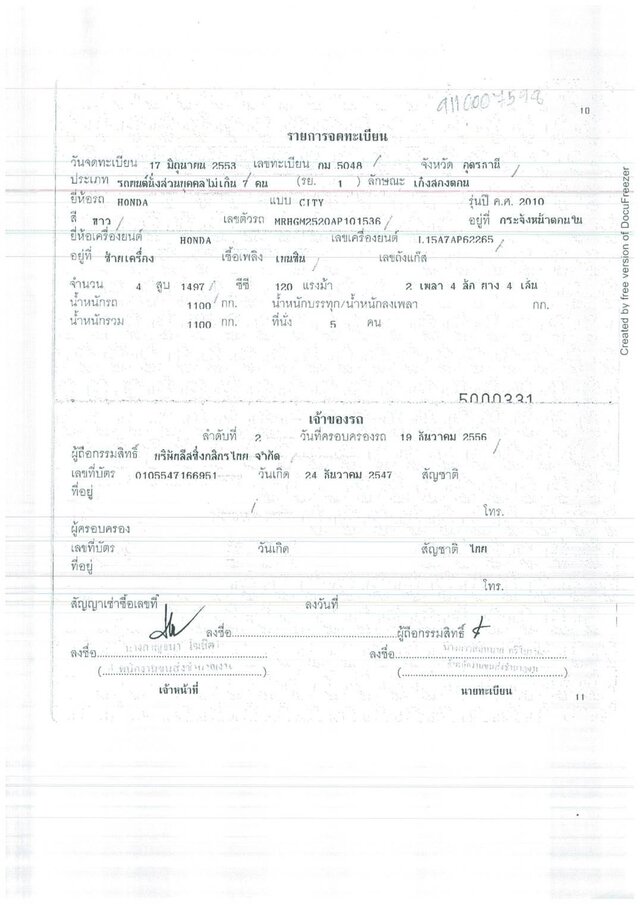 9110007598
10
รายการจดทะเบียน
วันจดทะเบียน 17 มิถุนายน 2553 เลขทะเบียน กม 5048 / จังหวัด อุดรธานี /
ประเภท รถยนต์นั่งส่วนบุคคลไม่เกิน 7 คน (รย. 1 ) ลักษณะ เก๋งสองตอน
ยี่ห้อรถ HONDA แบบ CITY รุ่นปี ค.ศ. 2010
สี ขาว / เลขตัวรถ MRHGM2520AP101536 / อยู่ที่ กระจังหน้าตอนใน
ยี่ห้อเครื่องยนต์ HONDA เลขเครื่องยนต์ L15A7AP62265 /
อยู่ที่ ซ้ายเครื่อง เชื้อเพลิง เบนซิน / เลขถังแก๊ส
จำนวน 4 สูบ 1497 / ซีซี 120 แรงม้า 2 เพลา 4 ล้อ ยาง 4 เส้น
น้ำหนักรถ 1100 กก. น้ำหนักบรรทุก/น้ำหนักลงเพลา กก.
น้ำหนักรวม 1100 กก. ที่นั่ง 5 คน
5000331
เจ้าของรถ
ลำดับที่ 2 วันที่ครอบครองรถ 19 ธันวาคม 2556 /
ผู้ถือกรรมสิทธิ์ บริษัทลีสซิ่งกสิกรไทย จำกัด
เลขที่บัตร 0105547166951 วันเกิด 24 ธันวาคม 2547 สัญชาติ
ที่อยู่
โทร.
ผู้ครอบครอง
เลขที่บัตร วันเกิด สัญชาติ ไทย
ที่อยู่
โทร.
สัญญาเช่าซื้อเลขที่ ลงวันที่
ลงชื่อ ผู้ถือกรรมสิทธิ์
ลงชื่อ ลงชื่อ
เจ้าหน้าที่ นายทะเบียน
11
Created by free version of DocuFreezer